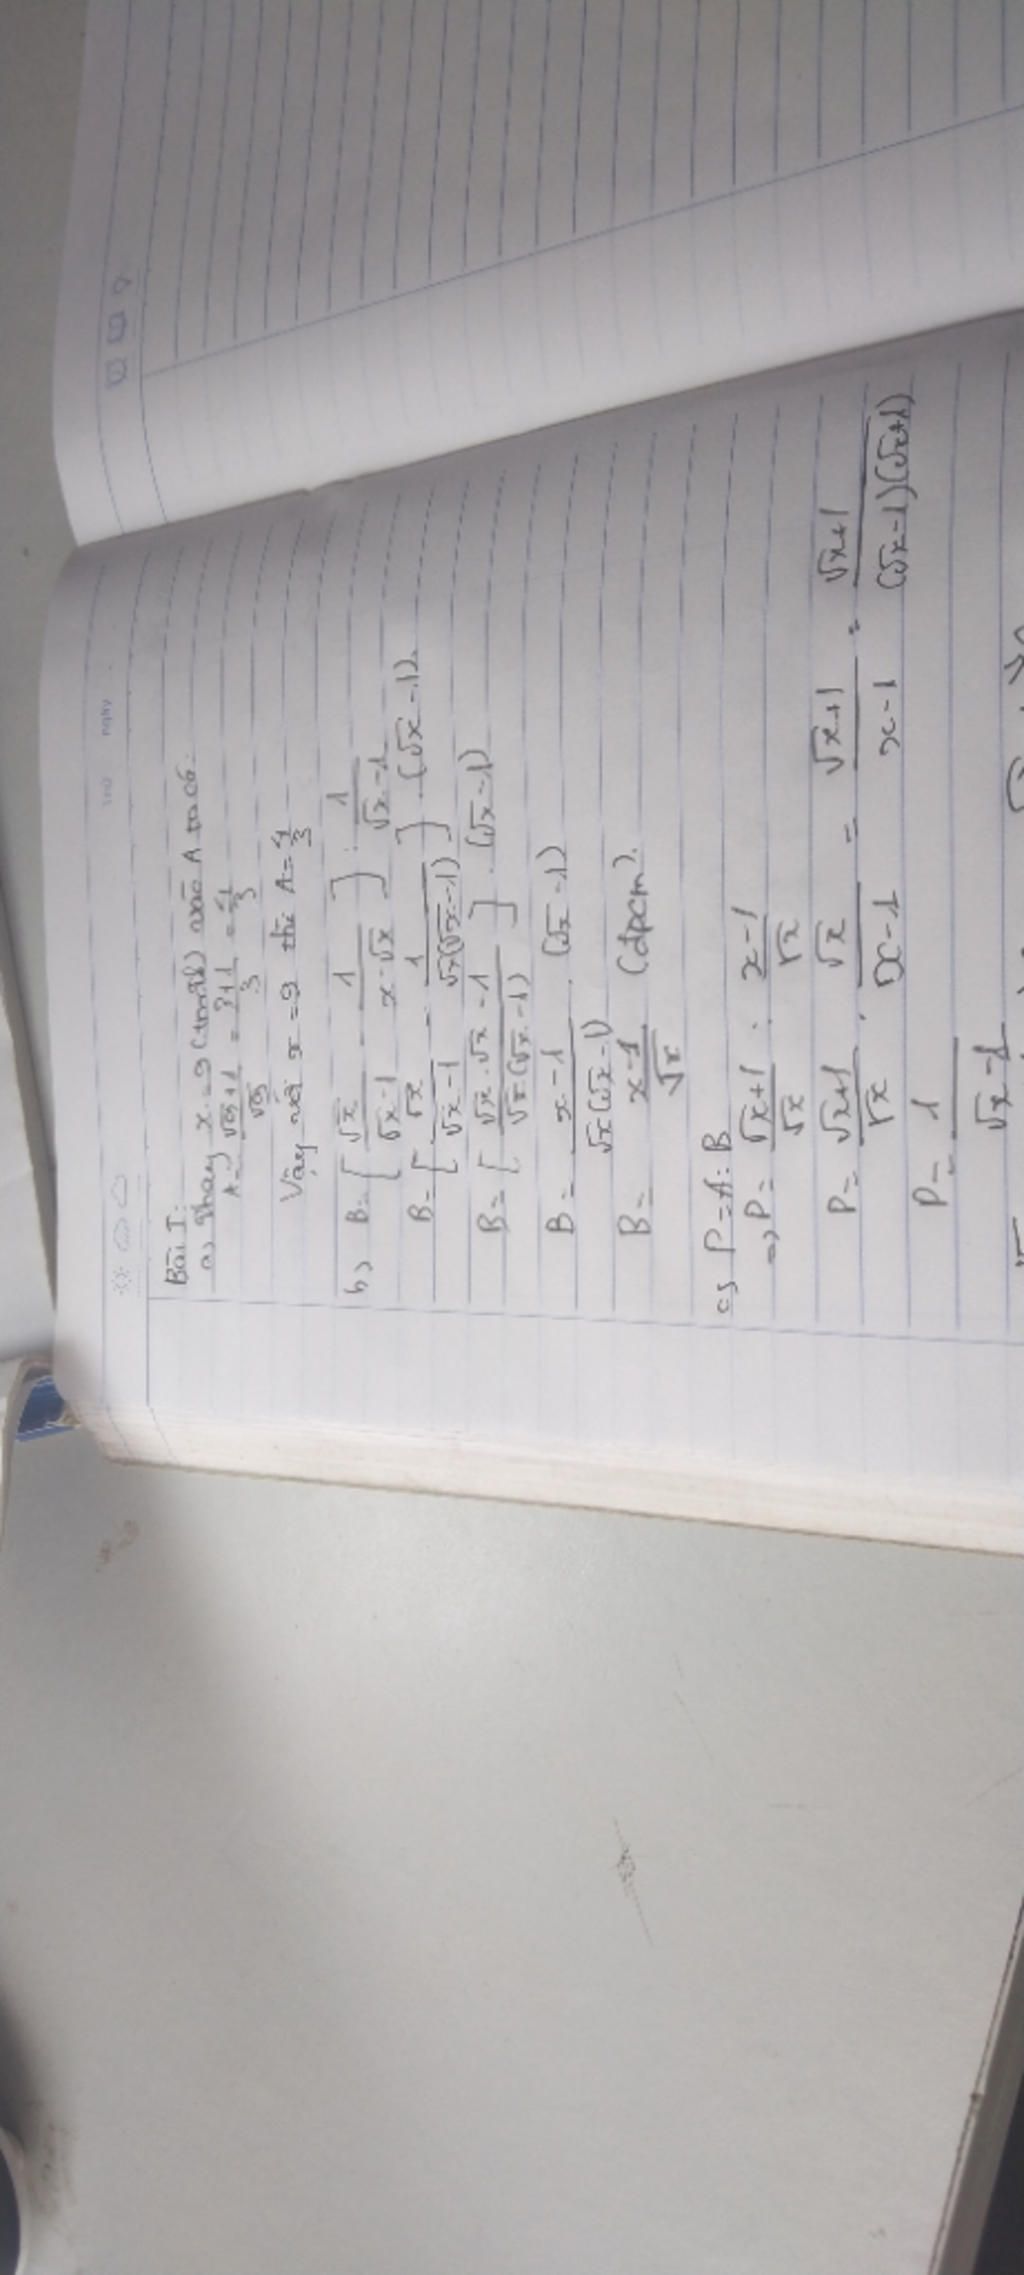 Thứ Ngày
Bài I:
a) Thay x = 9 (tmđk) vào A ta có:
A = √9+1/√9 = 3+1/3 = 4/3
Vậy với x = 9 thì A = 4/3
b) B = [√x/√x-1 - 1/x-√x] : 1/√x-1
B = [√x/√x-1 - 1/√x(√x-1)] . (√x-1).
B = [√x.√x-1/√x(√x-1)] . (√x-1)
B = x-1/√x(√x-1) . (√x-1)
B = x-1/√x (đpcm).
c) P = A : B
=> P = √x+1/√x : x-1/√x
P = √x+1/√x . √x/x-1 = √x+1/x-1 = √x+1/(√x-1)(√x+1)
P = 1/√x-1